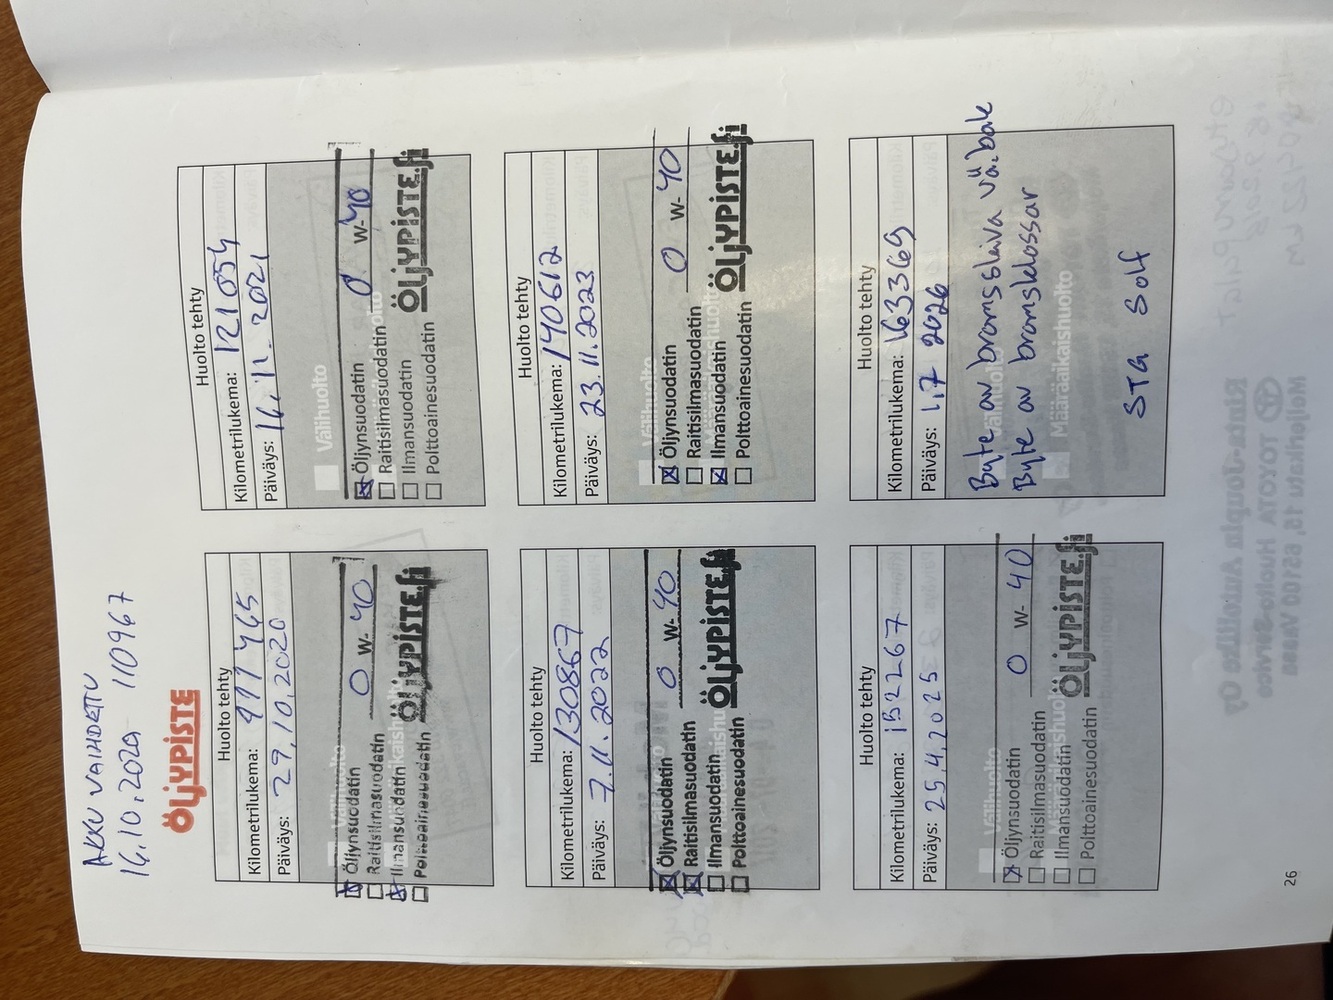 AKKU VAIHDETTU
16.10.2020 110967
ÖLJYPISTE
Huolto tehty
Kilometrilukema: 111 465
Päiväys: 29.10.2020
Välihuolto
0 W- 40
Öljynsuodatin
Raitisilmasuodatin
Ilmansuodatin
Polttoainesuodatin
ÖLJYPISTE.fi
Huolto tehty
Kilometrilukema: 121054
Päiväys: 16.11.2021
Välihuolto
0 W- 40
Öljynsuodatin
Raitisilmasuodatin
Ilmansuodatin
Polttoainesuodatin
ÖLJYPISTE.fi
Huolto tehty
Kilometrilukema: 130867
Päiväys: 7.11.2022
0 W- 40
Öljynsuodatin
Raitisilmasuodatin
Ilmansuodatin
Polttoainesuodatin
ÖLJYPISTE.fi
Huolto tehty
Kilometrilukema: 140612
Päiväys: 23.11.2023
Välihuolto
0 W- 40
Öljynsuodatin
Raitisilmasuodatin
Ilmansuodatin
Polttoainesuodatin
ÖLJYPISTE.fi
Huolto tehty
Kilometrilukema: 152267
Päiväys: 25.4.2025
Välihuolto
0 W- 40
Öljynsuodatin
Raitisilmasuodatin
Ilmansuodatin
Polttoainesuodatin
ÖLJYPISTE.fi
Huolto tehty
Kilometrilukema: 163369
Päiväys: 1.7 2026
Byte av bromsskiva vä.bak
Välihuolto
Byte av bromsklossar
Määräaikaishuolto
STG Solf
26